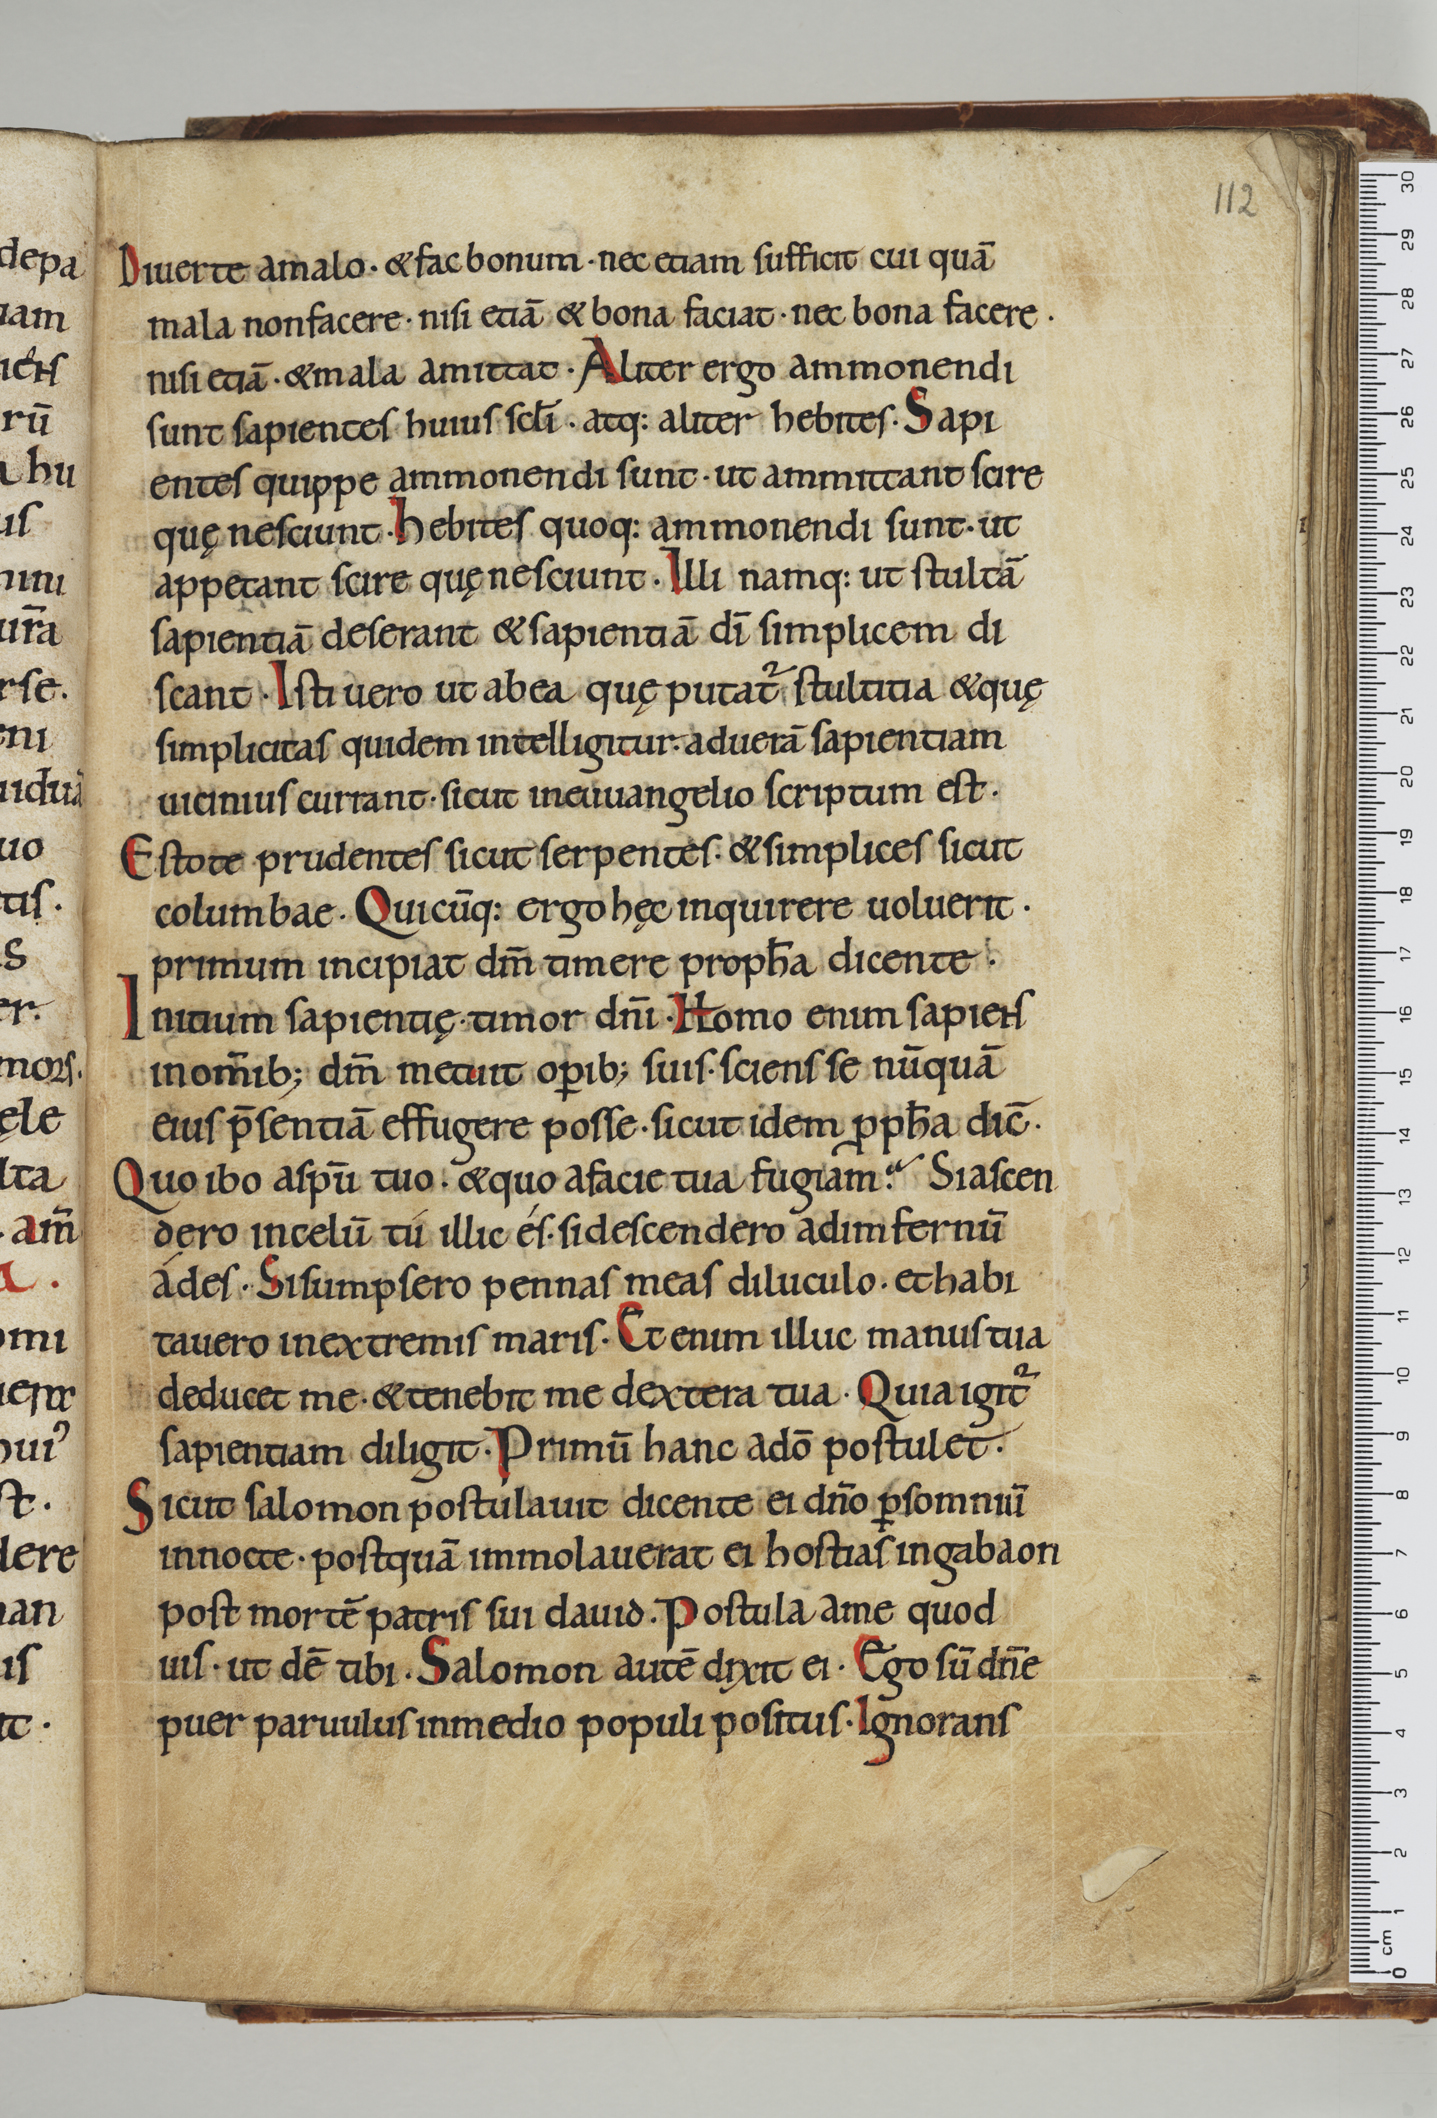 112
Diuerte amalo · & fac bonum · nec etiam sufficit cui quā
mala nonfacere · nisi etiā & bona faciat · nec bona facere ·
nisi etiā · & mala amittat · Aliter ergo ammonendi
sunt sapientes huius scłi · atq: aliter hebites · Sapi
entes quippe ammonendi sunt · ut ammittant scire
quę nesciunt · hebites quoq: ammonendi sunt · ut
appetant scire quę nesciunt · Illi namq: ut stultā
sapientiā deserant & sapientiā dī simplicem di
scant · Isti uero ut abea quę putat᷑ stultitia & quę
simplicitas quidem intelligitur · aduerā sapientiam
uicinius currant · sicut ineuuangelio scriptum est ·
Estote prudentes sicut serpentes · & simplices sicut
columbae · Quicūq: ergo hęc inquirere uoluerit ·
primum incipiat dm̄ timere proph̄a dicente ·
Initium sapientię · timor dn̄i · Homo enim sapiens
inom̄ib; dm̄ metuit oꝑib; suis · sciens se nūquā
eius p̄sentiā effugere posse · sicut idem ꝓph̄a dic̄ ·
Quo ibo aspū tuo · & quo afacie tua fugiam? Siascen
dero incelū tú illic és · sidescendero adimfernū
ádes · Sisumpsero pennas meas diluculo · ethabi
tauero inextremis maris · Et enim illuc manus tua
deducet me · & tenebit me dextera tua · Quia igit᷑
sapientiam diligit · Primū hanc adō postulet ·
Sicut salomon postulauit dicente ei dn̄o ꝑsomniū
innocte · postquā immolauerat ei hostias ingabaon
post mortē patris sui dauid · Postula ame quod
uis · ut dē tibi · Salomon autē dixit ei · Ego sū dn̄e
puer paruulus inmedio populi positus · Ignorans